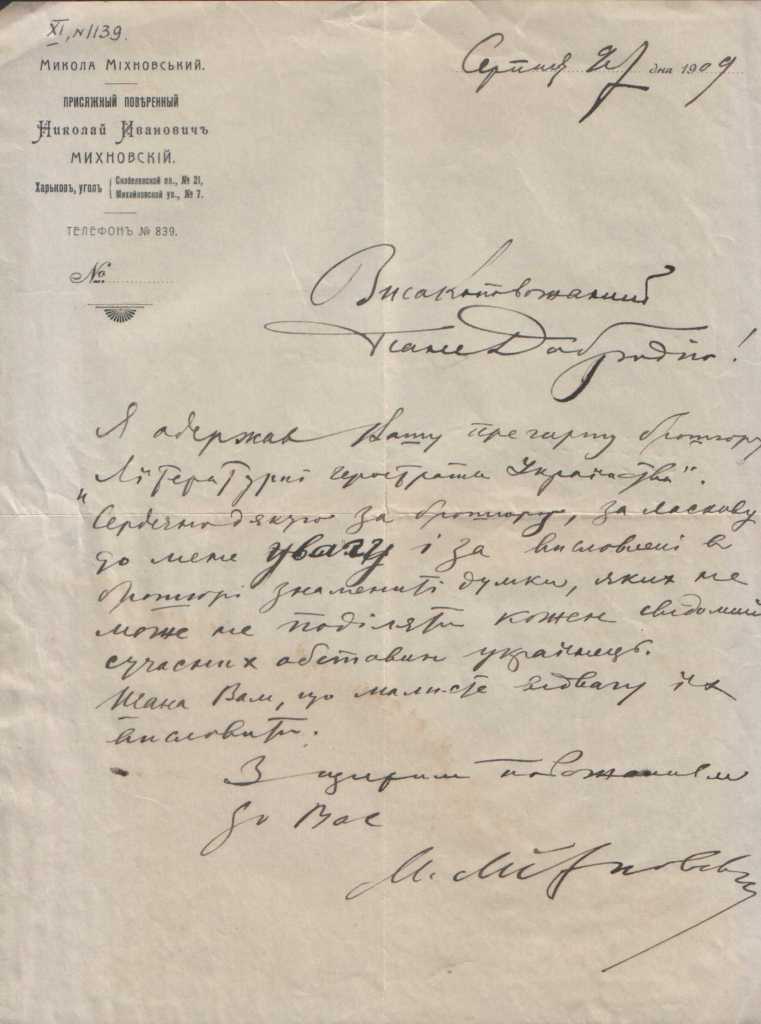 XI, №1139.
Микола Міхновський.
ПРИСЯЖНЫЙ ПОВѢРЕННЫЙ
Николай Ивановичъ
МИХНОВСКІЙ.
Харьковъ, уголъ
Скобелевской пл., № 21,
Михайловской ул., № 7.
ТЕЛЕФОНЪ № 839.
№
Серпня дна 1909
Високоповожаний
Пане Добродію!
Я одержав Вашу прегарну брошюру
„Літературні герострати Українства".
Сердечно дякую за брошюру, за ласкову
до мене увагу і за висловлені в
брошюрі знамениті думки, яких не
може не поділяти кожен свідомий
сучасних обставин українець.
Шана Вам, що малисте відвагу їх
висловити.
З щирим поважанням
до Вас
М. Міхновський